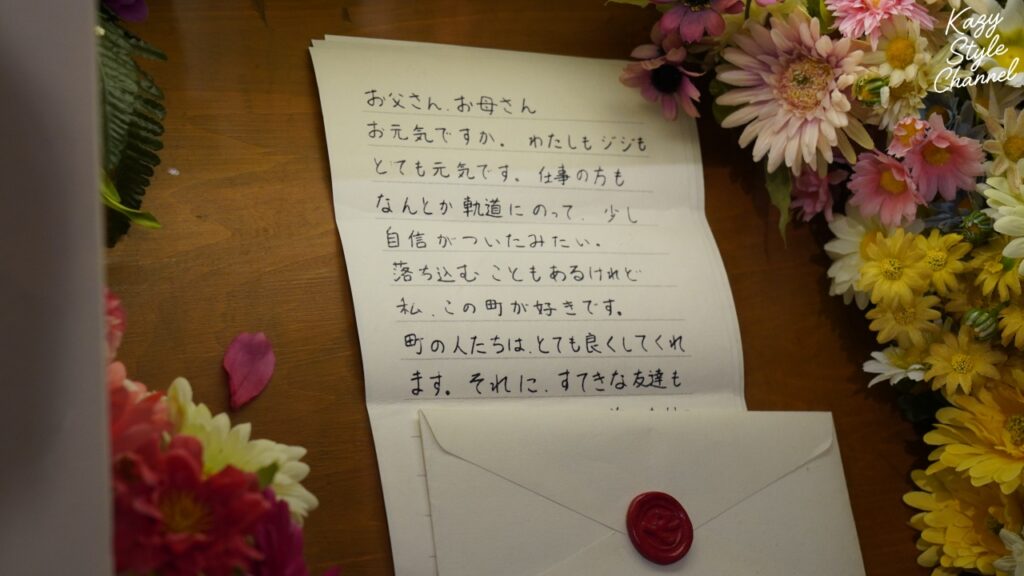 お父さん、お母さん
お元気ですか。わたしもジジも
とても元気です。仕事の方も
なんとか軌道にのって、少し
自信がついたみたい。
落ち込むこともあるけれど
私、この町が好きです。
町の人たちは、とても良くしてくれ
ます。それに、すてきな友達も
Kazy
Style
Channel